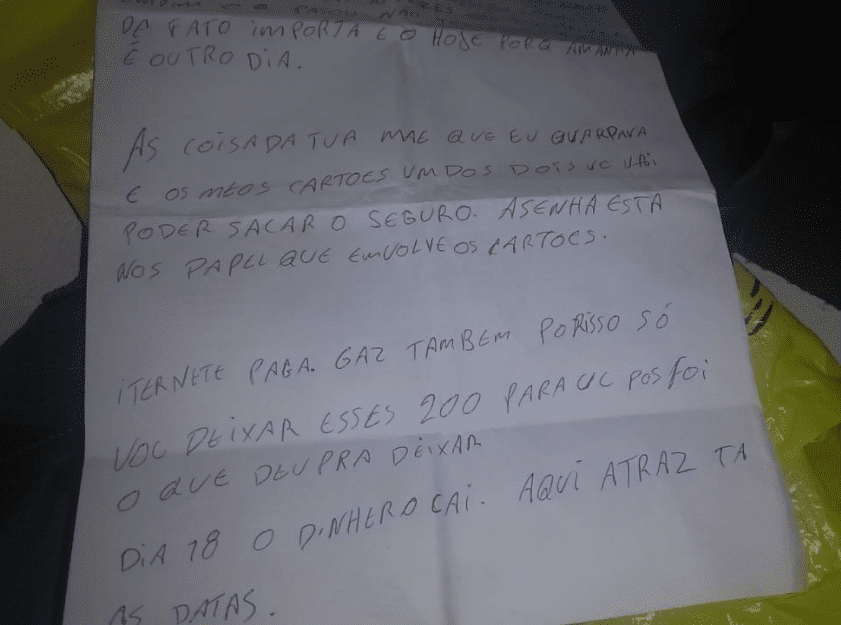 DE FATO IMPORTA E O HOJE PORQ AMANHA
É OUTRO DIA.
AS COISADATUA MAE QUE EU GUARDAVA
E OS MEOS CARTOES UM DOS DOIS VC VAI
PODER SACAR O SEGURO. ASENHA ESTA
NOS PAPEL QUE EMVOLVE OS CARTOES.
ITERNETE PAGA. GAZ TAMBEM PORISSO SÓ
VOU DEIXAR ESSES 200 PARA VC POS FOI
O QUE DEU PRA DEIXAR
DIA 18 O DINHERO CAI. AQUI ATRAZ TA
AS DATAS.